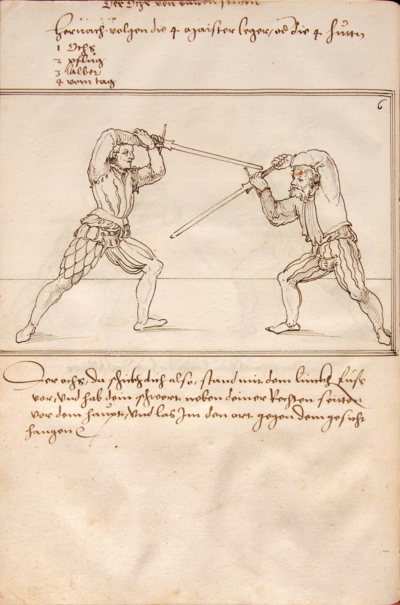 Der Ochs von baiden seitten
Hernach volgen die 4 maister leger, od die 4 hutten
1 Ochs
2 pflug
3 alber
4 vom tag
6
Der ochs, da schickh dich also, stand mit dem linckh fuess
vor, und hab dein schwert neben deiner Rechten seitten
vor dem haupt, und las Im den ort gegen dem gesicht
hangen